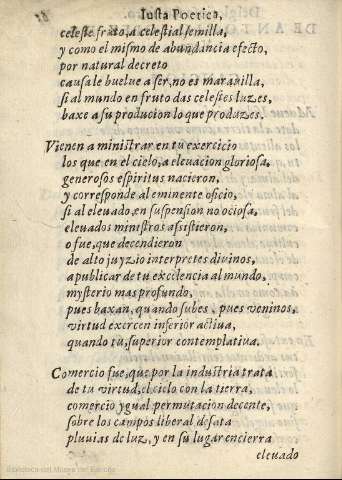 Iusta Poetica,
celeste fruto, a celestial semilla,
y como el mismo de abundancia efecto,
por natural decreto
causa le buelue a ser, no es marauilla,
si al mundo en fruto das celestes luzes,
baxe a su producion lo que produzes.
Vienen a ministrar en tu exercicio
los que en el cielo, a eleuacion gloriosa,
generosos espiritus nacieron,
y corresponde al eminente oficio,
si al eleuado, en suspension no ociosa,
eleuados ministros assistieron,
o fue, que decendieron
de alto juyzio interpretes diuinos,
a publicar de tu excelencia al mundo,
mysterio mas profundo,
pues baxan, quando subes, pues veninos,
virtud exercen inferior actiua,
quando tu, superior contemplatiua.
Comercio fue, que por la industria trata
de tu virtud, el cielo con la tierra,
comercio ygual permutacion decente,
sobre los campos liberal desata
pluuias de luz, y en su lugar encierra
eleuado
Biblioteca del Museo del Ejército